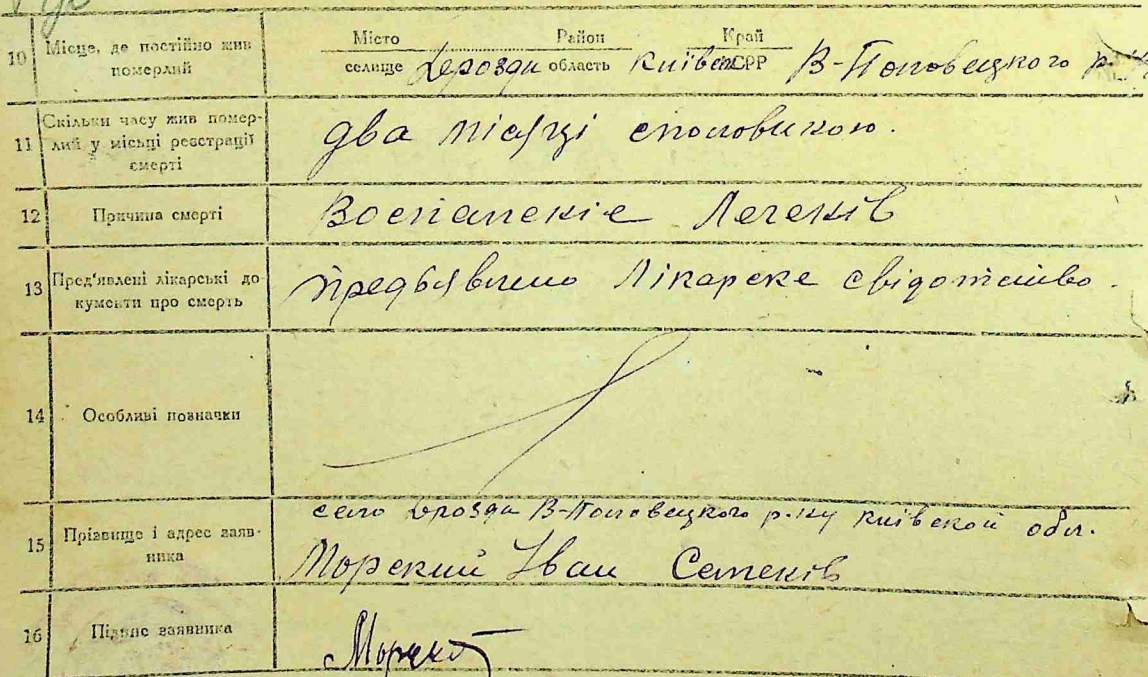 10 Місце, де постійно жив
померлий
Місто Район Край
селище Дрозди область Київск СРР В-Половецкого р-ну
11 Скільки часу жив помер-
лий у місьці реєстрації
смерті
два місяці споловиною.
12 Причина смерті
Воспаленіє Легенів
13 Пред'явлені лікарські до-
кументи про смерть
предьявлено Лікарске свідотство.
14 Особливі позначки
15 Прізвище і адрес заяв-
ника
село Дрозди В-Половецкого р-ну київскои обл.
Морский Іван Семенів
16 Підпис заявника